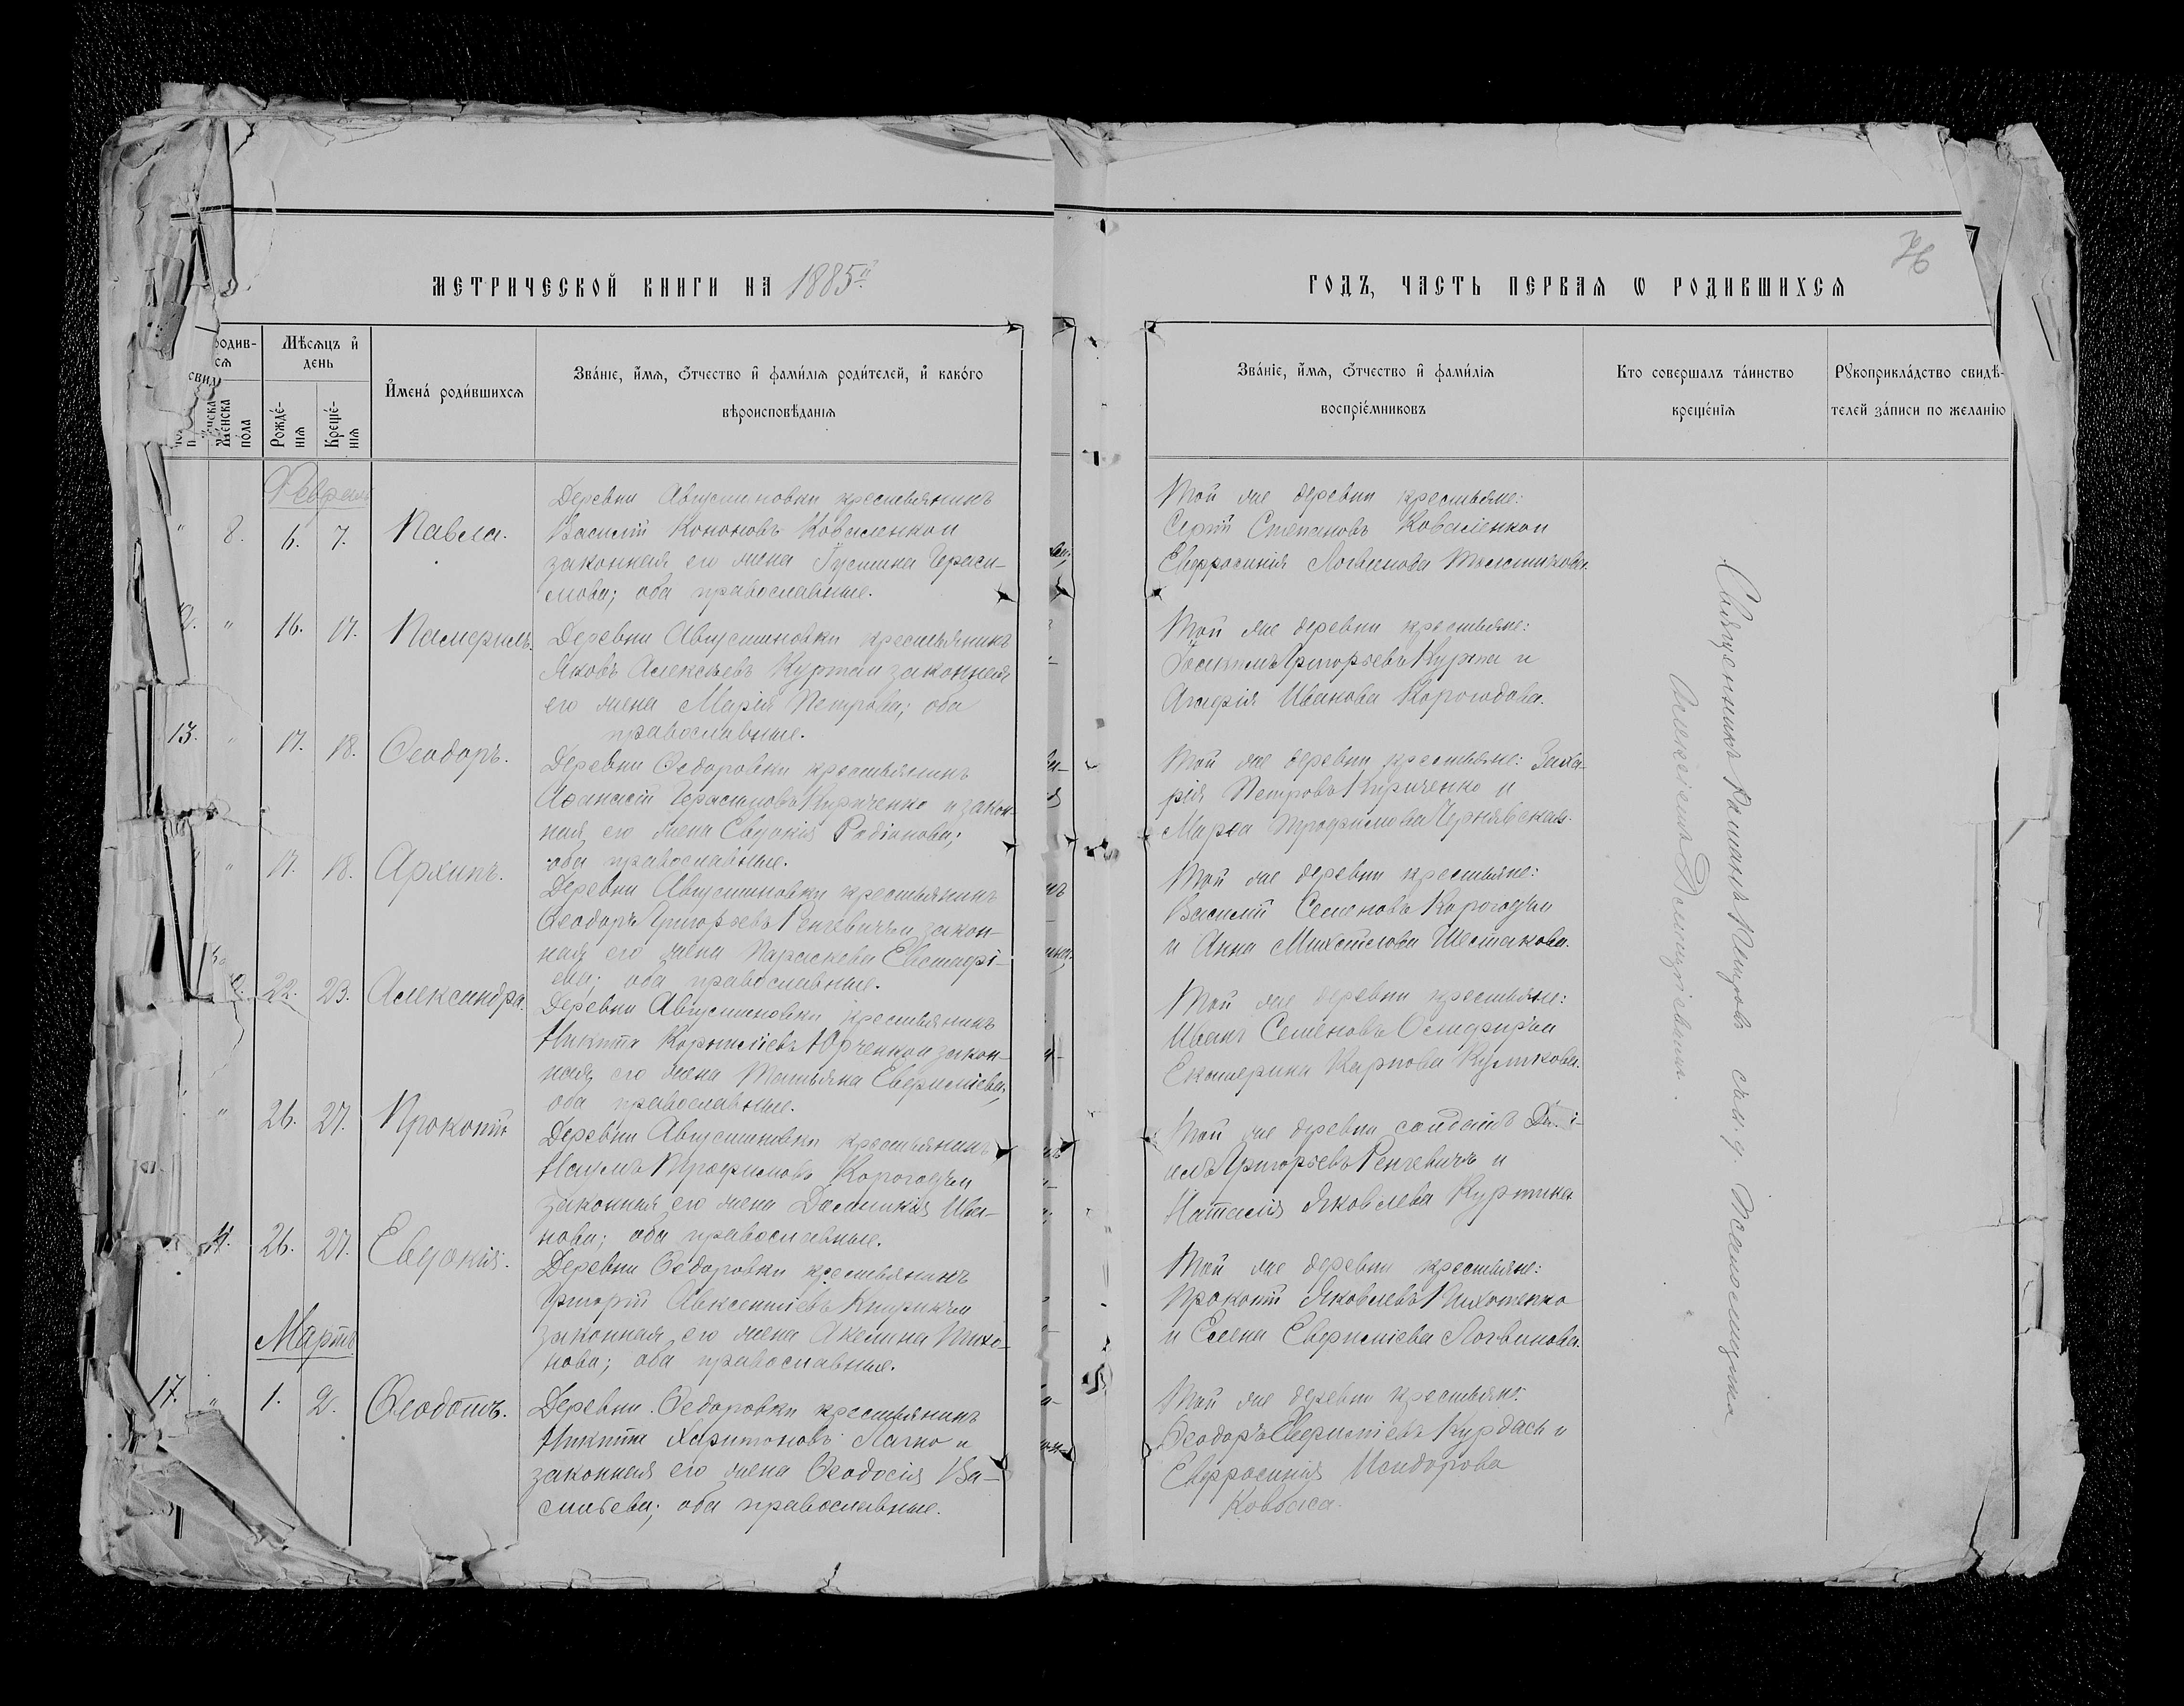 МЕТРИЧЕСКОЙ КНИГИ НА 1885й
Мѣсяцъ и день
Рожде-
нія
Креще-
нія
Женска
пола
Имена родившихся
Званіе, имя, отчество и фамилія родителей, и какого
вѣроисповѣданія
Февраль
8. 6. 7. Павла.
Деревни Августиновки крестьянинъ
Василій Кононовъ Коваленко и
законная его жена Іустина Гераси-
мова; оба православные.
" 16. 17.
Деревни Августиновки крестьянинъ
Яковъ Алексѣевъ Курта и законная
его жена Марія Петрова; оба
православные.
13. " 17. 18. Ѳеодоръ.
Деревни Ѳедоровки крестьянинъ
Аѳанасій Герасимовъ Кириченко и закон-
ная его жена Евдокія Родіонова;
оба православные.
" 17. 18. Архипъ.
Деревни Августиновки крестьянинъ
Ѳеодоръ Григорьевъ Ренгевичъ и закон-
ная его жена Параскева Евстаѳі-
ева; оба православные.
22. 23. Александра.
Деревни Августиновки крестьянинъ
Никита Корниліевъ Юрченко и закон-
ная его жена Татьяна
оба православные.
" 26. 27. Прокопій
Деревни Августиновки крестьянинъ
Наумъ Трофимовъ Корогодъ и
законная его жена Домникія Ива-
нова; оба православные.
26. 27. Евдокія.
Деревни Ѳедоровки крестьянинъ
Григорій Авксентіевъ и
законная его жена Акелина Тихо-
нова; оба православные.
Мартъ
17. " 1. 2. Ѳеодотъ.
Деревни Ѳедоровки крестьянинъ
Никита Харитоновъ Лачко и
законная его жена Ѳеодосія Ва-
сильева; оба православные.
76
ГОДЪ, ЧАСТЬ ПЕРВАЯ Ѡ РОДИВШИХСЯ
Званіе, имя, отчество и фамилія
воспріемниковъ
Кто совершалъ таинство
крещенія
Рукоприкладство свидѣ-
телей записи по желанію
Той же деревни крестьяне:
Сергій Степановъ Коваленко и
Евфросинія Логвинова
Той же деревни крестьяне:
Григорьевъ Курта и
Агаѳія Иванова Корогодова.
Той же деревни крестьяне: Заха-
рія Петровъ Кириченко и
Марѳа Трофимова Чернявская.
Той же деревни крестьяне:
Василій Семеновъ Корогодъ и
и Анна Михайлова Шестакова.
Той же деревни крестьяне:
Иванъ Семеновъ и
Екатерина Карпова Куликова.
Той же деревни солдатъ Дані-
илъ Григорьевъ Ренгевичъ и
Наталія Яковлева Куртина
Той же деревни крестьяне:
Прокопій Яковлевъ
и Елена Логвинова.
Той же деревни крестьяне:
Ѳеодоръ Курдась и
Евфросинія Исидорова
Ковбаса.
Священникъ съ и. д. псаломщика
Алексіемъ